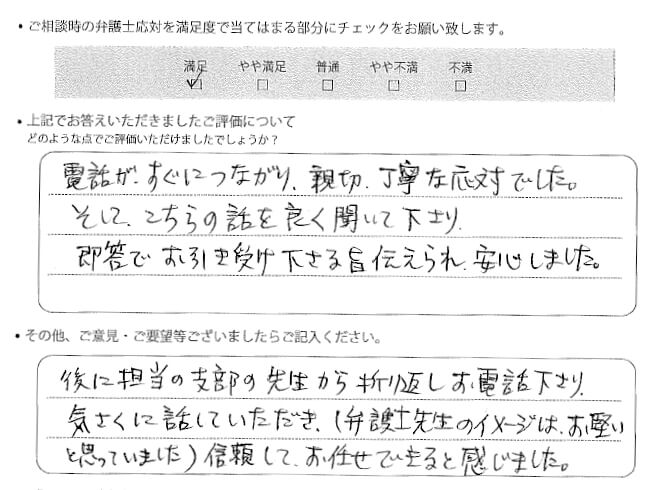 ・ご相談時の弁護士応対を満足度で当てはまる部分にチェックをお願い致します。
満足 やや満足 普通 やや不満 不満
・上記でお答えいただきましたご評価について
どのような点でご評価いただけましたでしょうか？
電話が、すぐにつながり、親切、丁寧な応対でした。
そして、こちらの話を良く聞いて下さり、
即答でお引き受け下さる旨伝えられ、安心しました。
・その他、ご意見・ご要望等ございましたらご記入ください。
後に担当の支部の先生から折り返しお電話下さり、
気さくに話していただき、(弁護士先生のイメージは、お堅い
と思っていました)信頼して、お任せできると感じました。